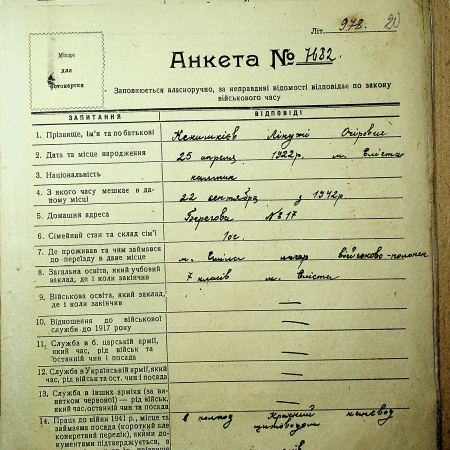 Літ. 978. 20
Місце
для
фотокартки
Анкета № 7682
Заповнюється власноручно, за неправдиві відомості відповідає по закону
військового часу
ЗАПИТАННЯ ВІДПОВІДІ
1. Прізвище, ім'я та по батькові
2. Дата та місце народження 25 апреля 1922р. м. Еліста
3. Національність калмик
4. З якого часу мешкає в да-
ному місці 22 сентября з 1942р
5. Домашня адреса Берегова № 17
6. Сімейний стан та склад сім'ї
7. Де проживав та чим займався
до переїзду в дане місце м. лагер військово-полонен
8. Загальна освіта, який учбовий
заклад, де і коли закінчив 7 класів м. Еліста
9. Військова освіта, який заклад,
де і коли закінчив —
10. Відношення до військової
служби до 1917 року —
11. Служба в б. царській армії,
який час, рід військ та
останній чин і посада —
12. Служба в Українській армії, який
час, рід військ та ост. чин і посада —
13. Служба в інших арміях (за ви-
нятком червоної) — рід військ,
який час, останній чин та посада —
14. Праця до війни 1941 р., місце та
займаєма посада (короткий але
конкретний перелік), якими до-
кументами підтверджується, а
в колхоз